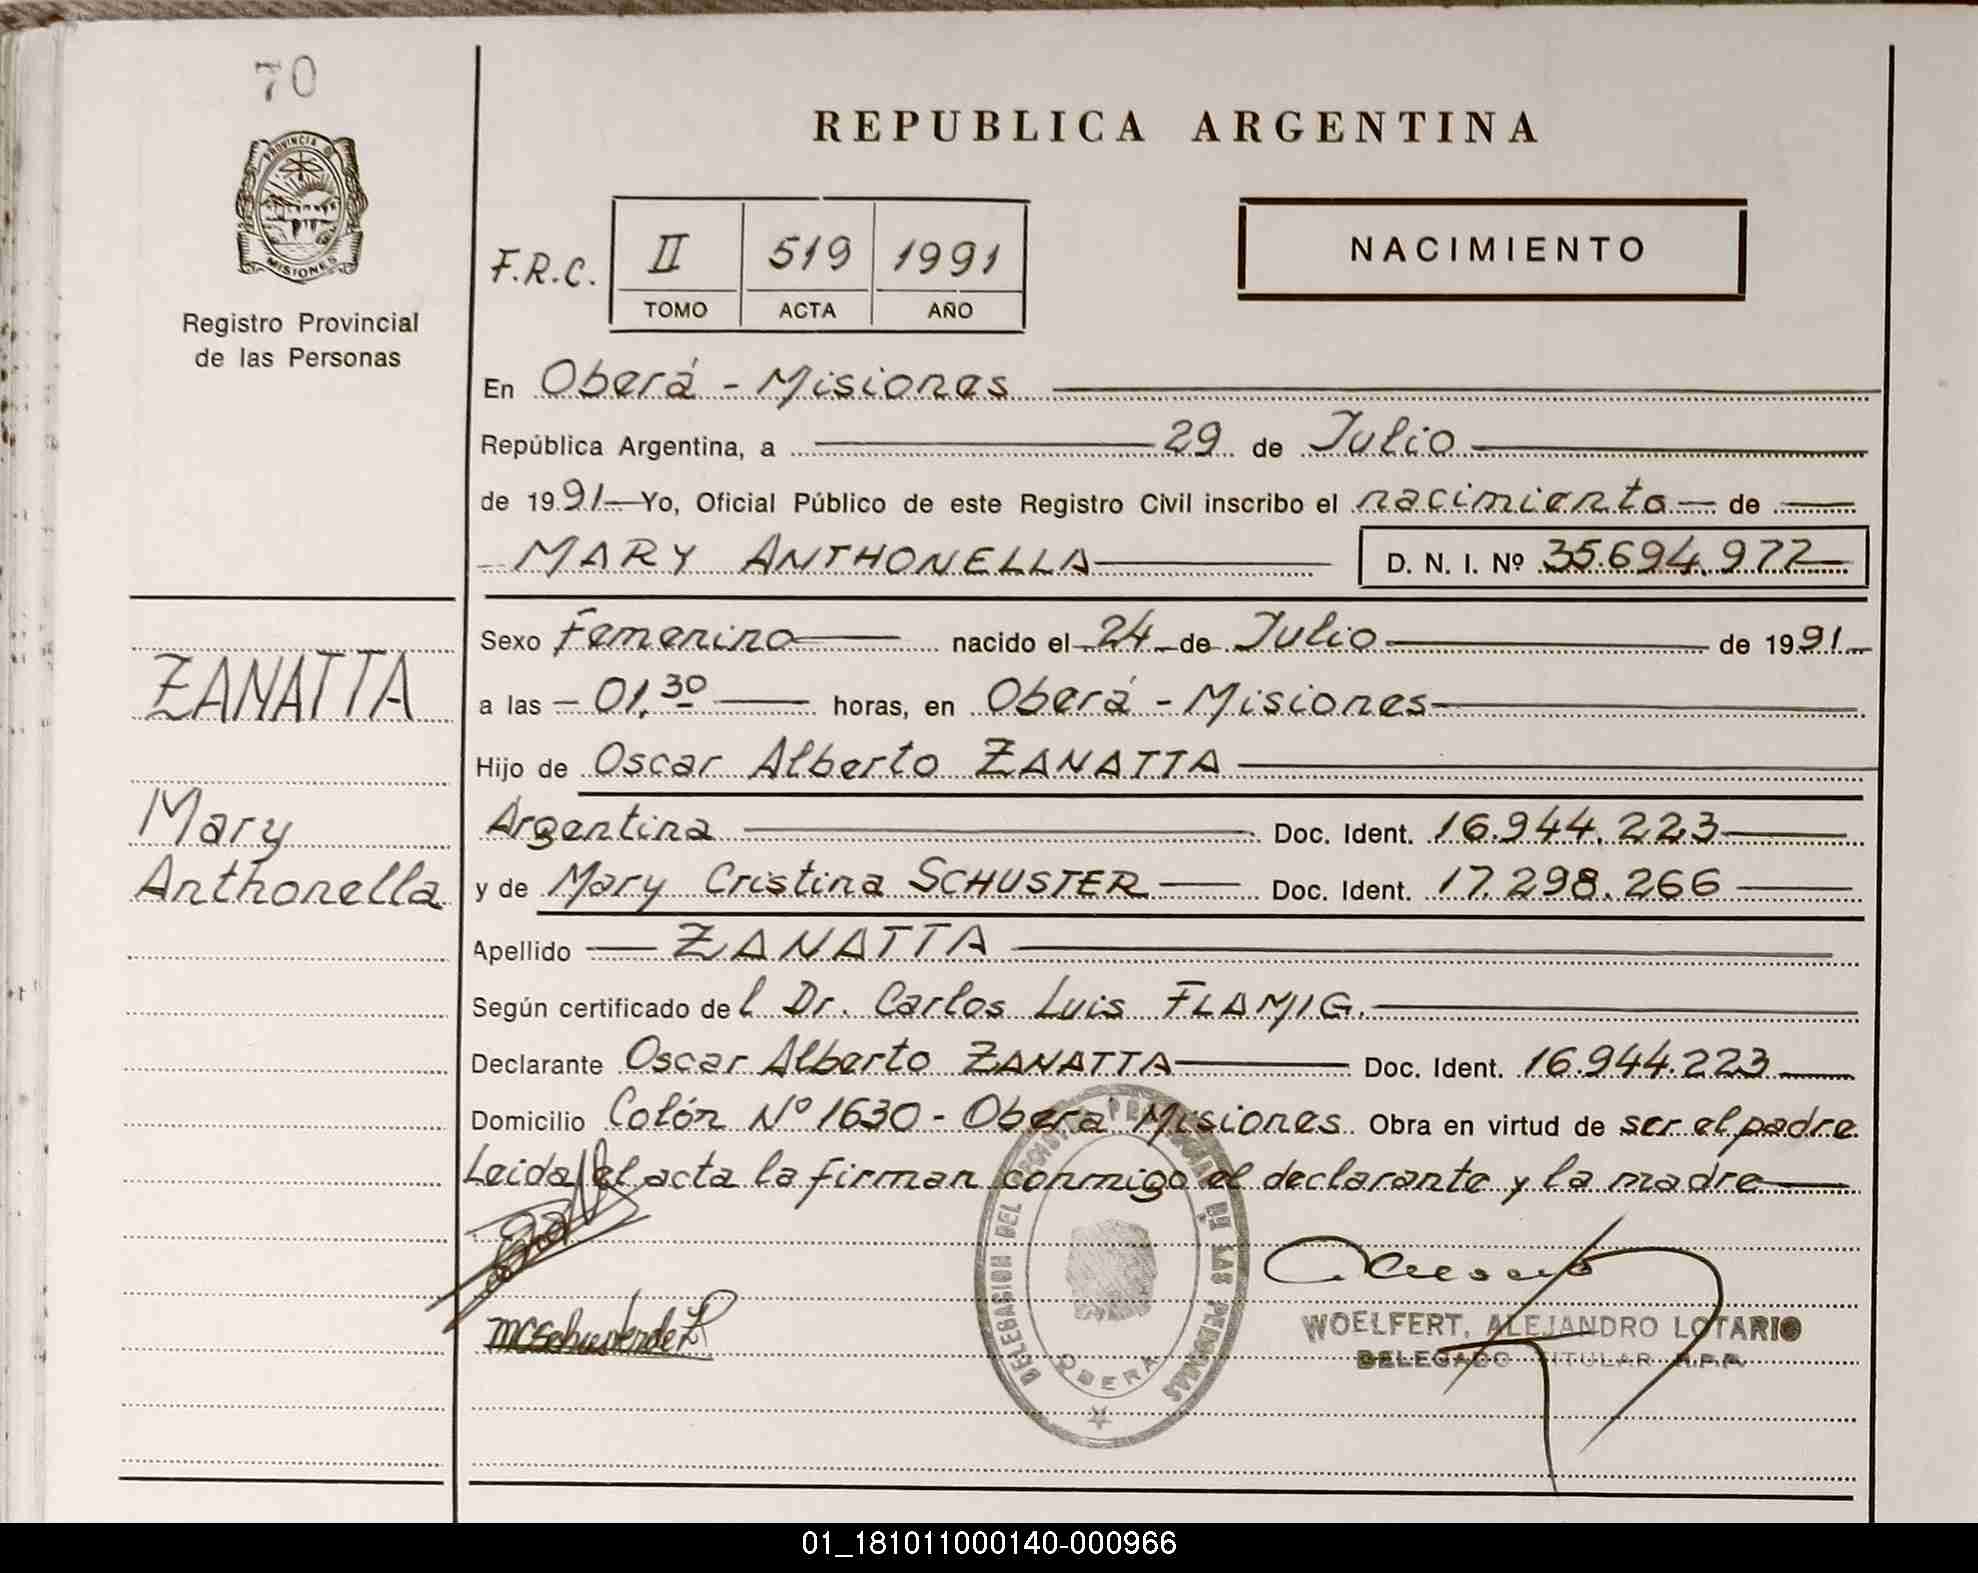 70
PROVINCIA D
MISIONES
Registro Provincial
de las Personas
ZANATTA
Mary
Anthonella
REPUBLICA ARGENTINA
F.R.C. II 519 1991
TOMO ACTA AÑO
NACIMIENTO
En Oberá - Misiones
República Argentina, a 29 de Julio
de 1991 Yo, Oficial Público de este Registro Civil inscribo el nacimiento de
MARY ANTHONELLA D. N. I. Nº 35.694.972
Sexo Femenino nacido el 24 de Julio de 1991
a las 01,30 horas, en Oberá - Misiones
Hijo de Oscar Alberto ZANATTA
Argentina Doc. Ident. 16.944.223
y de Mary Cristina SCHUSTER Doc. Ident. 17.298.266
Apellido ZANATTA
Según certificado del Dr. Carlos Luis FLAMIG.
Declarante Oscar Alberto ZANATTA Doc. Ident. 16.944.223
Domicilio Colón Nº 1630 - Oberá Misiones Obra en virtud de ser el padre
Leida el acta la firman conmigo el declarante y la madre
MCSchusterdeZ
DELEGACION DEL REGISTRO PROVINCIAL DE LAS PERSONAS
OBERA
WOELFERT, ALEJANDRO LOTARIO
DELEGADO TITULAR R.P.P.
01_181011000140-000966